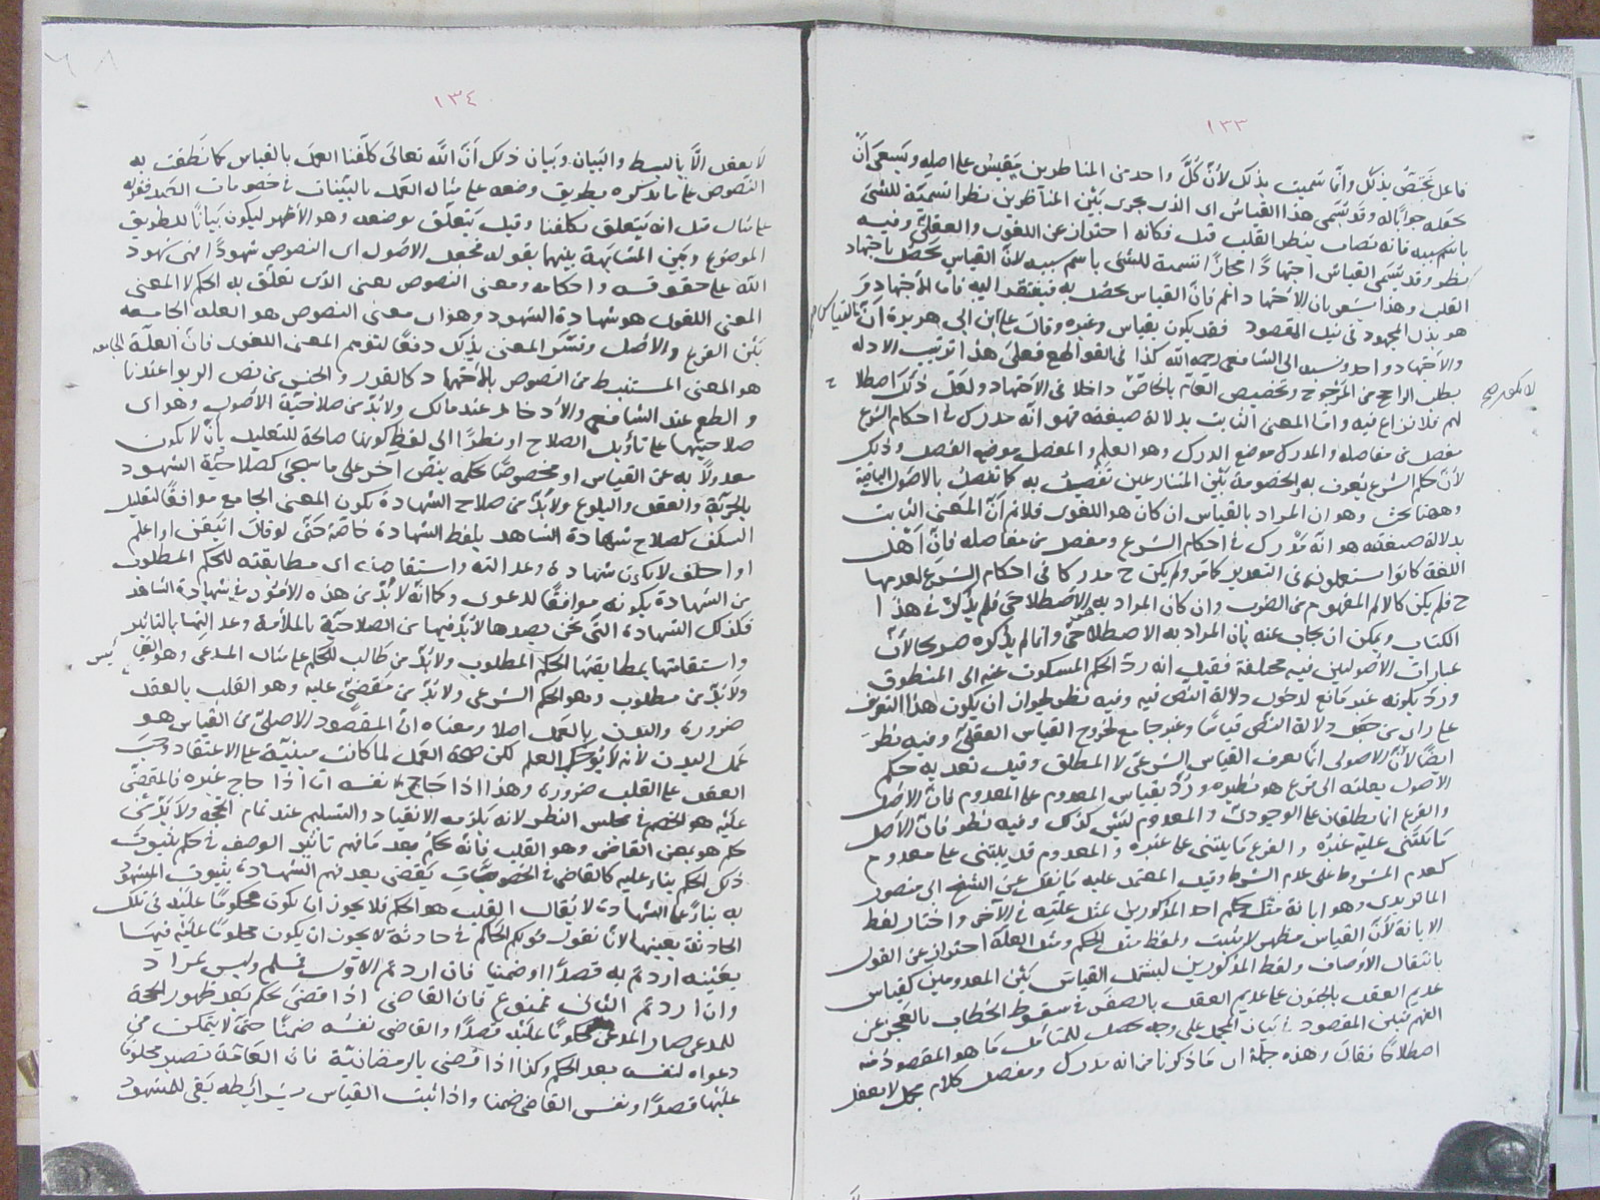 ١٣٣
فاعل يختص بذلك وانما سميت بذلك لأن كل واحد من المناظرين يقيس على اصله ويسعى أن
يجعله جوابا له وقد يسمى هذا القياس اى الذى يجرى بين المناظرين نظرا تسمية للشئ
باسم سببه فانه يصاب بنظر القلب قيل فكانه احتراز عن اللغوى والعقلى وفيه
نظر وقد يسمى القياس اجتهادًا مجازًا تسمية للشئ باسم سببه لأن القياس يحصل باجتهاد
القلب وهذا يشعر بان الاجتهاد اعم فان القياس يحصل به فيفتقد اليه فاما الاجتهاد
هو بذل المجهود فى نيل المقصود فقد يكون بقياس وغيره وقال على بن ابى هريرة أن القياس
والاجتهاد واحد ونسبه الى الشافعى رحمه الله كذا فى القواطع فعلى هذا ترتيب الادلة
بطلب الراجح من المرجوح وتخصيص العام بالخاص داخلا فى الاجتهاد ولعل ذلك اصطلا
لهم فلا نزاع فيه واما المعنى الثابت بدلالة صيغته فهو انه مدرك فى احكام الشرع
مفصل من مفاصله والمدرك موضع الدرك وهو العلم والمفصل موضع الفصل وذلك
لأن حكم الشرع يعرف به والخصومة بين المتنازعين تفصل به كما تفصل بالاصول الباقية
وههنا بحث وهو ان المراد بالقياس ان كان هو اللغوى فلا نم أن المعنى الثابت
بدلالة صيغته هو انه مدرك فى احكام الشرع ومفصل من مفاصله فان أهل
اللغة كانوا يستعملونه فى التقدير كما مر ولم يكن ح مدركا فى احكام الشرع لعدمها
ح فلم يكن كالالم المفهوم من الضرب وان كان المراد به الاصطلاحى فلم يذكر فى هذا
الكتاب ويمكن ان يجاب عنه بان المراد به الاصطلاحى وانما لم يذكره صريحا لأن
عبارات الاصوليين فيه مختلفة فقيل انه رد الحكم المسكوت عنه الى المنطوق
ورد بكونه غير مانع لدخول دلالة النص فيه وفيه نظر لجواز ان يكون هذا التعريف
على راى من جعل دلالة النص قياسا وغير جامع لخروج القياس العقلى وفيه نظر
ايضا لأن الاصولى انما يعرف القياس الشرعى لا المطلق وقيل تعدية حكم
الاصول بعلته الى فرع هو نظيره ورد بقياس المعدوم على المعدوم فان الاصل
والفرع انما يطلقان على الوجودى والمعدوم ليس كذلك وفيه نظر فان الاصل
ما يبتنى عليه غيره والفرع ما يبتنى على غيره والمعدوم قد يبتنى على معدوم
كعدم المشروط على عدم الشرط وقيل المعتمد عليه ما نقل عن الشيخ ابى منصور
الماتريدى وهو ابانة مثل حكم احد المذكورين بمثل علته فى الآخر واختار لفظ
الابانة لأن القياس مظهر لا مثبت ولفظ مثل الحكم ومثل العلة احتراز عن القول
بانتقال الاوصاف ولفظ المذكورين ليشمل القياس بين المعدومين كقياس
عديم العقل بالجنون على عديم العقل بالصغر فى سقوط الخطاب بالعجز عن
الفهم فبين المقصود فى بيان المجمل على وجه يحصل للمتأمل ما هو المقصود منه
اصطلاحًا فقال وهذه جملة اى ما ذكرنا من انه مدرك ومفصل كلام مجمل لا يعقل
١٣٤
لا يعقل إلا بالبسط والبيان وبيان ذلك أن الله تعالى كلفنا العمل بالقياس كما نطقت به
النصوص على ما نذكره بطريق وضعه على مثال العمل بالبينات فى خصومات العباد فقوله
على مثال قيل انه يتعلق بكلفنا وقيل يتعلق بوضعه وهو الأظهر ليكون بيانًا للطريق
الموضوع وبين المشابهة بينهما بقوله فجعل الاصول اى النصوص شهودًا فهى شهود
الله على حقوقه واحكامه ومعنى النصوص يعنى الذى تعلق به الحكم لا المعنى
المعنى اللغوى هو شهادة الشهود وهو اى معنى النصوص هو العلة الجامعة
بين الفرع والأصل وفسر المعنى بذلك دفعًا لتوهم المعنى اللغوى فان العلة الجامعة
هو المعنى المستنبط من النصوص بالاجتهاد كالقدر والجنس من نص الربوا عندنا
والطعم عند الشافعى والادخار عند مالك ولا بد من صلاحية الأصول وهو اى
صلاحيتها على تأويل الصلاح او نظرًا الى لفظ كونها صالحة للتعليل بأن لا يكون
معدولاً به عن القياس او مخصوصًا حكمه بنص آخر على ما سيجئ كصلاحية الشهود
بالحرية والعقل والبلوغ ولا بد من صلاح الشهادة بكون المعنى الجامع موافقًا لتعليل
السلف كصلاح شهادة الشاهد بلفظ الشهادة خاصة حتى لو قال اتيقن او اعلم
او احلف لا يكون شهادة وعدالته واستقامته اى مطابقته للحكم المطلوب
من الشهادة بكونه موافقًا لدعوى وكما انه لا بد من هذه الأمور فى شهادة الشاهد
فكذلك الشهادة التى نحن بصددها لا بد فيها من الصلاحية بالملائمة وعدالتها بالتأثير
واستقامتها بمطابقتها الحكم المطلوب ولا بد من طالب للحكم على مثال المدعى وهو القايس
ولا بد من مطلوب وهو الحكم الشرعى ولا بد من مقضى عليه وهو القلب بالعقد
ضرورة والبدن بالعمل اصلا ومعناه ان المقصود الاصلى من القياس هو
عمل البدن لأنه لا يوجب العلم لكن صحة العمل لما كانت مبنية على الاعتقاد وجب
العقد على القلب ضرورة وهذا اذا حاج نفسه اما اذا حاج غيره فالمقضى
عليه هو الخصم فى مجلس النظر لانه يلزمه الانقياد والتسليم عند تمام الحجة ولا بد من
حكم هو بمعنى القاضى وهو القلب فانه يحكم بعد ما فهم تأثير الوصف فى حكم بثبوت
ذلك الحكم بناء عليه كالقاضى فى الخصومات يقضى بعد فهم الشهادة بثبوت المشهود
به بناءً على الشهادة لا يقال القلب هو الحكم فلا يجوز ان يكون محكومًا عليه فى تلك
الحادثة بعينها لانا نقول قولكم الحاكم فى حادثة لا يجوز ان يكون محكومًا عليه فيها
بعينه اردتم به قصدًا او ضمنا فان اردتم الاول فمسلم وليس بمراد
وان اردتم الثانى فممنوع فان القاضى اذا قضى بحكم بعد ظهور الحجة
للمدعى صار المدعى محكومًا عليه قصدًا والقاضى نفسه ضمنًا حتى لا يتمكن من
دعواه لنفسه بعد الحكم وكذا اذا قضى بالرمضانية فان العامة تصير محكومًا
عليها قصدًا ونفس القاضى ضمنا واذا ثبت القياس بشرائطه بقى للمشهود